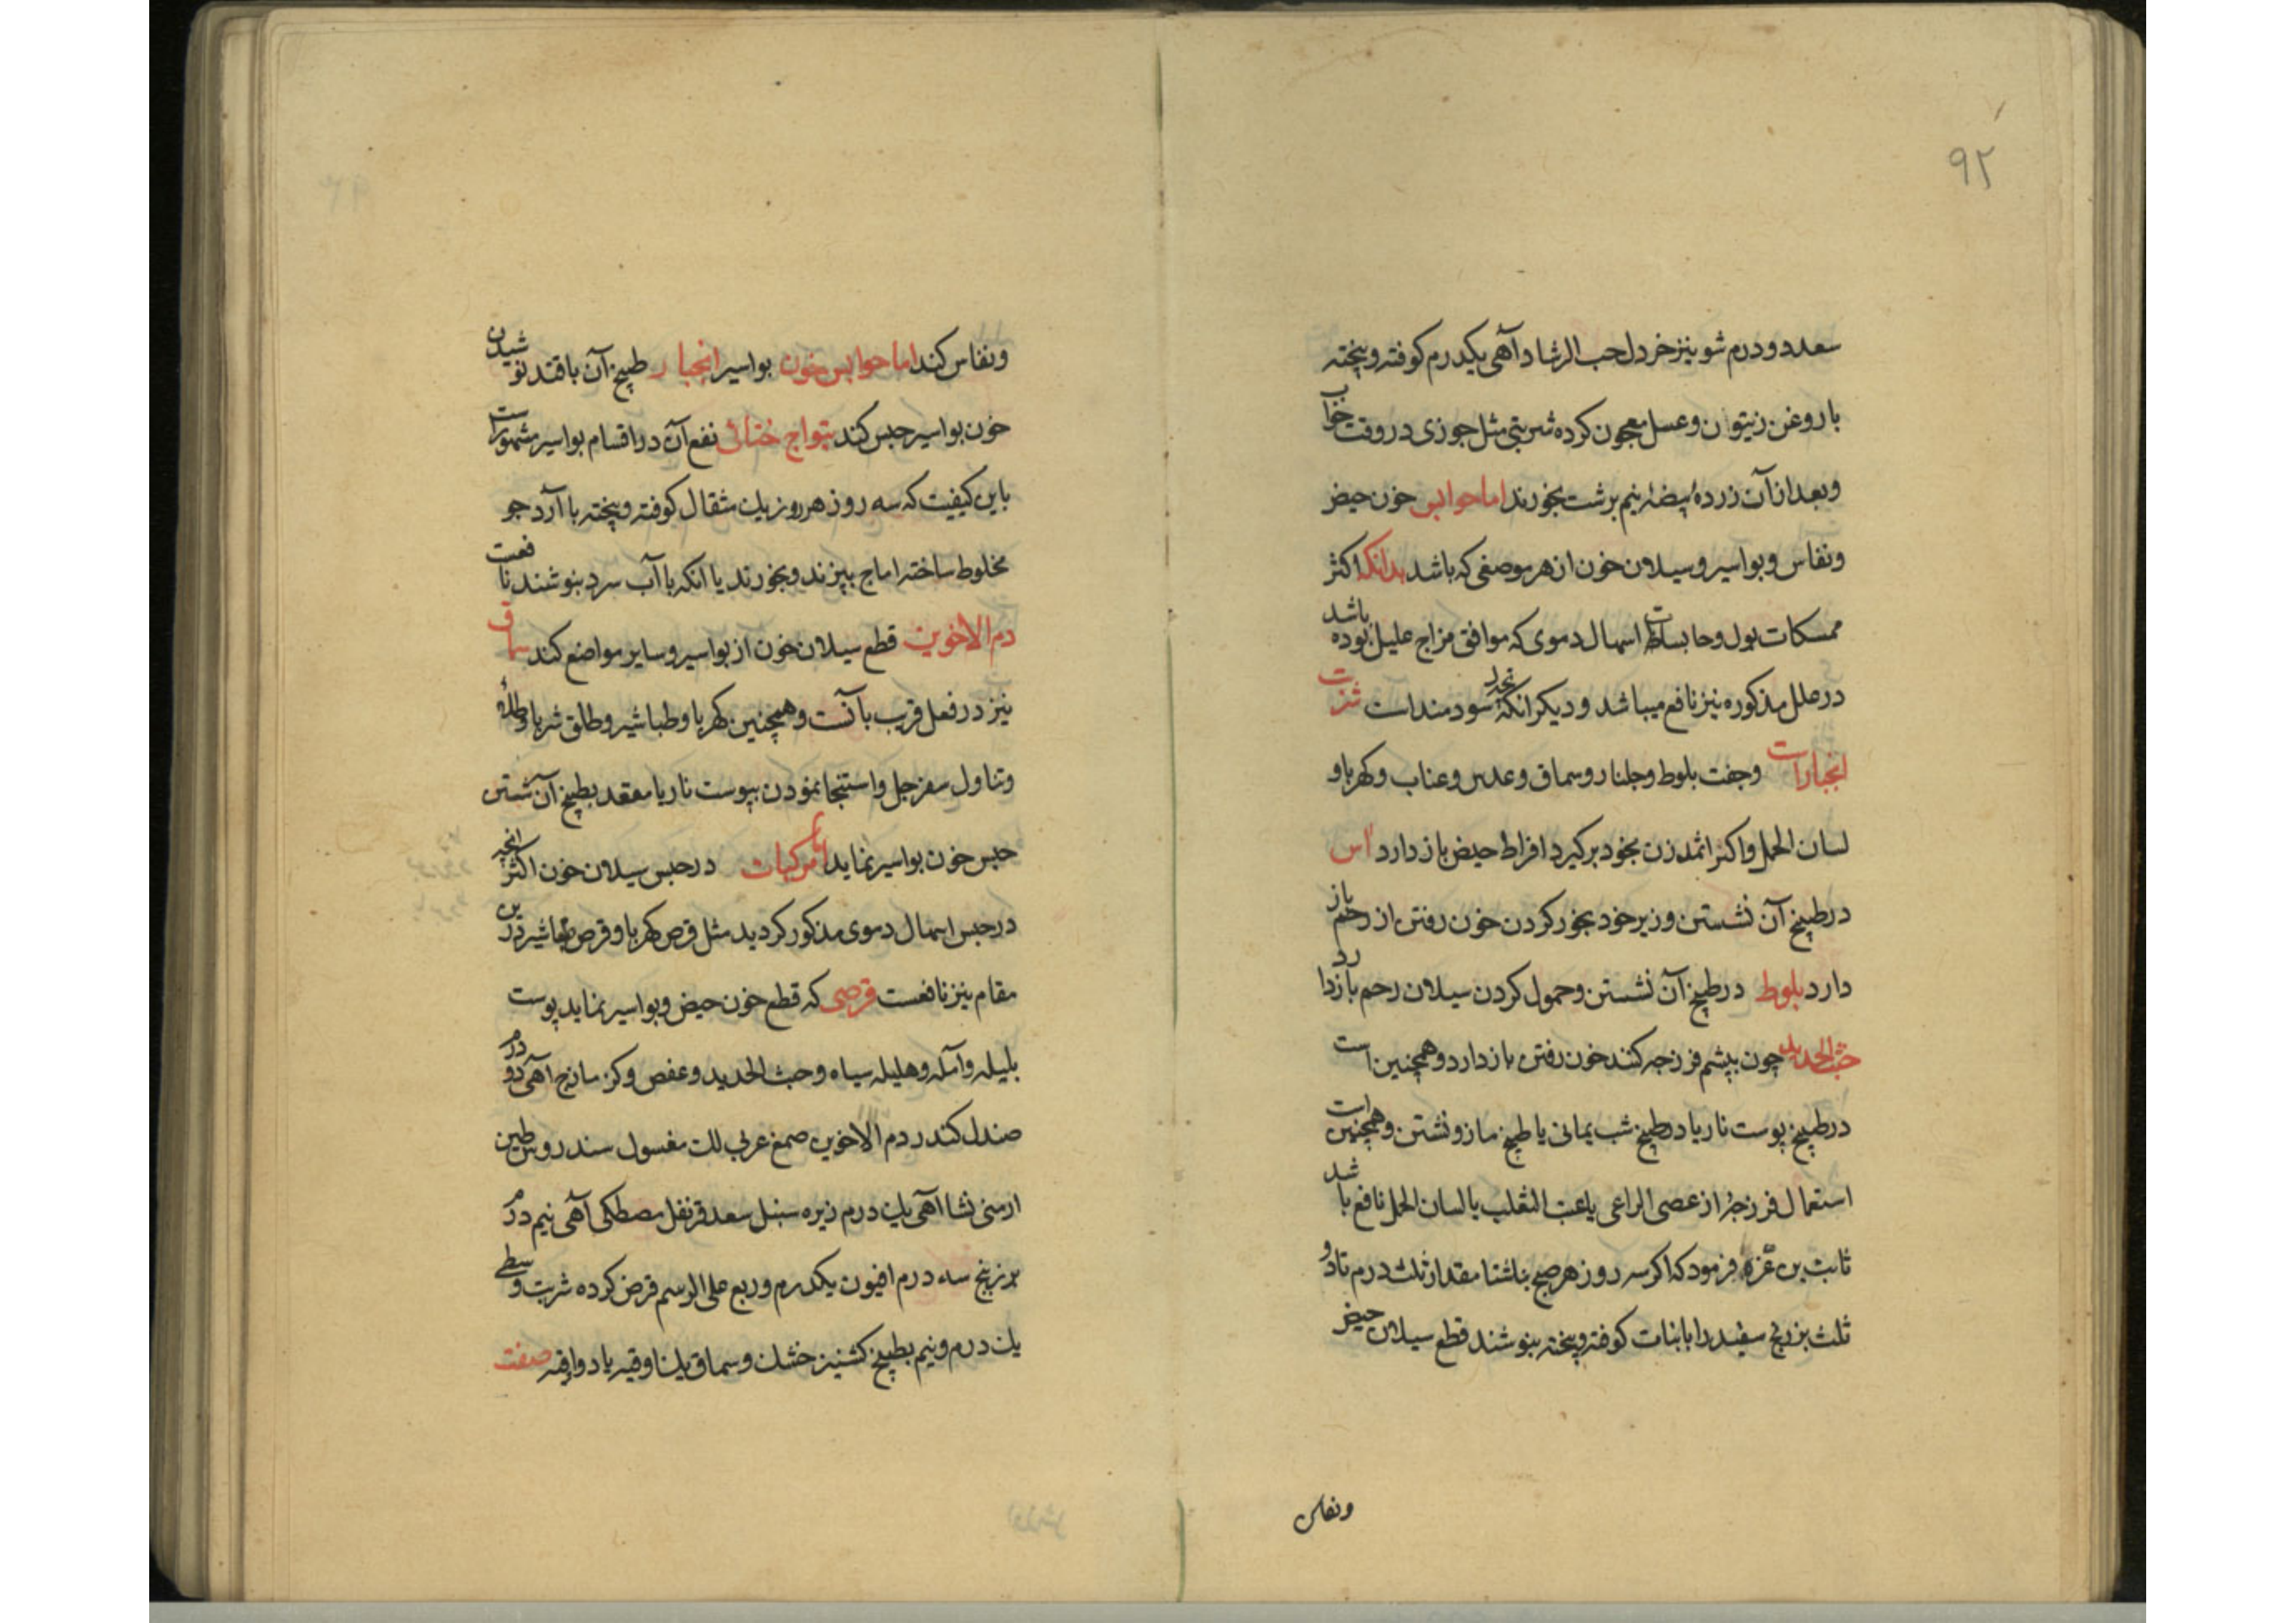 ۹۲
سعد دو درم شونیز خردل حب الرشاد آهی یکدرم کوفته و پخته
با روغن زیتون و عسل معجون کرده شربتی مثل جوزی در وقت خواب
و بعد از آن زردهٔ بیضهٔ نیم برشت بخورند اما حوابس خون حیض
و نفاس و بواسیر و سیلان خون از هر موضعی که باشد بدانکه اکثر
ممسکات بول و حابسات اسهال دموی که موافق مزاج علیل بوده باشد
در علل مذکوره نیز نافع میباشد و دیکر انکه سودمند است شربت
انجبارات وجفت بلوط و جلنار و سماق و عدس و عناب و کهربا و
لسان الحمل و اکر اثمد زن بخود برکیرد افراط حیض باز دارد آس
در طبیخ آن نشستن و زیر خود بخور کردن خون رفتن از رحم باز
دارد بلوط در طبیخ آن نشستن و حمول کردن سیلان رحم باز دارد
خبث الحدید چون بپشم فرزجه کنند خون رفتن باز دارد و همچنین است
در طبیخ پوست نار یا در طبیخ شب یمانی یا طبیخ مازو نشستن و همچنین است
استعمال فرزجهٔ از عصی الراعی یا عنب الثعلب یا لسان الحمل نافع باشد
ثابت بن عزه فرمود که اکر سه روز هر صبح بناشتا مقدار ثلث درم تا دو
ثلث بزرنج سفید را با نبات کوفته و پخته بنوشند قطع سیلان حیض
و نفاس
و نفاس کند اما حوابس خون بواسیر انجبار طبیخ آن با قند نوشیدن
خون بواسیر حبس کند بتواج ختائی نفع آن در اقسام بواسیر مشهور است
باین کیفیت که سه روز هر روز یک مثقال کوفته و پخته با آرد جو
مخلوط ساخته اماج بپزند و بخورند یا انکه با آب سرد بنوشند نافعست
دم الاخوین قطع سیلان خون از بواسیر و سایر مواضع کند سماق
نیز در فعل قریب بآنست و همچنین کهربا و طباشیر و طلق شربا و طلاء
و تناول سفرجل و استنجا نمودن بپوست نار یا مقعد بطبیخ آن شستن
حبس خون بواسیر نماید اما مرکبات در حبس سیلان خون اکثر انچه
در حبس اسهال دموی مذکور کردید مثل قرص کهربا و قرص طباشیر درین
مقام نیز نافعست قرصی که قطع خون حیض و بواسیر نماید پوست
بلیله و آمله و هلیله سیاه و خبث الحدید و عفص و کزمازج آهی دو درم
صندل کندر دم الاخوین صمغ عربی لک مغسول سندروس طین
ارمنی نشا آهی یک درم زیره سنبل سعد قرنفل مصطکی آهی نیم درم
بزرنج سه درم افیون یکدرم و ربع علی الرسم قرض کرده شربت وسطی
یک درم و نیم بطبیخ کشنیز خشک و سماق یک اوقیه یا دو اوقیه صفت